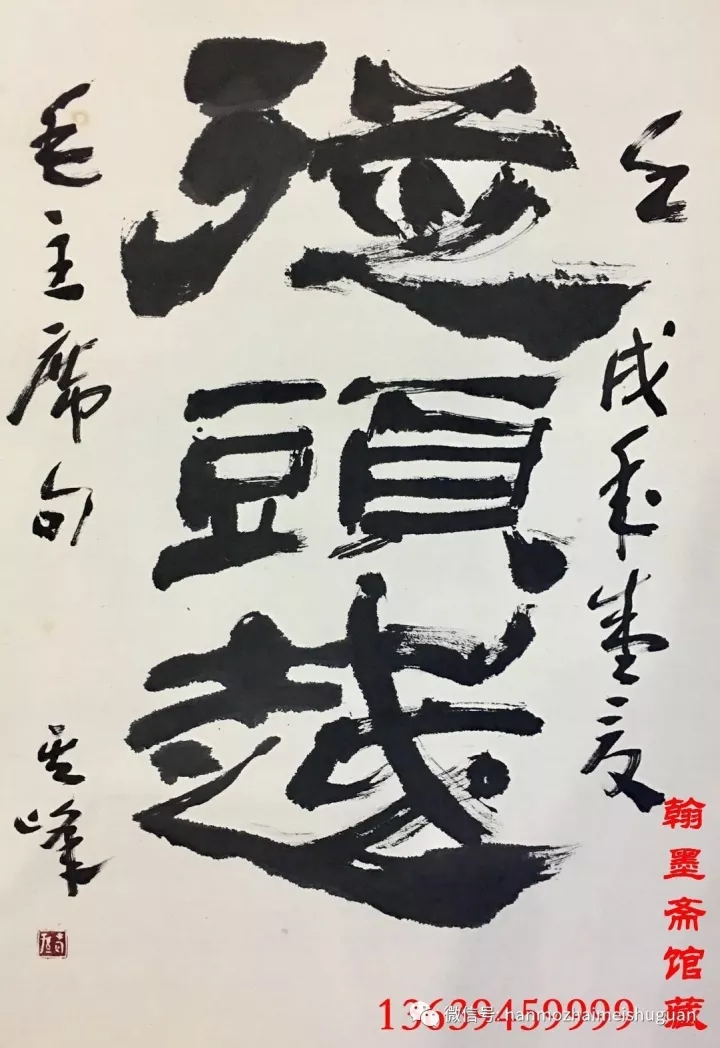 壬戌年盛夏
從頭越
毛主席句
其峰
翰墨斋馆藏
13639459999
微信号: hanmozhaimeishuguan